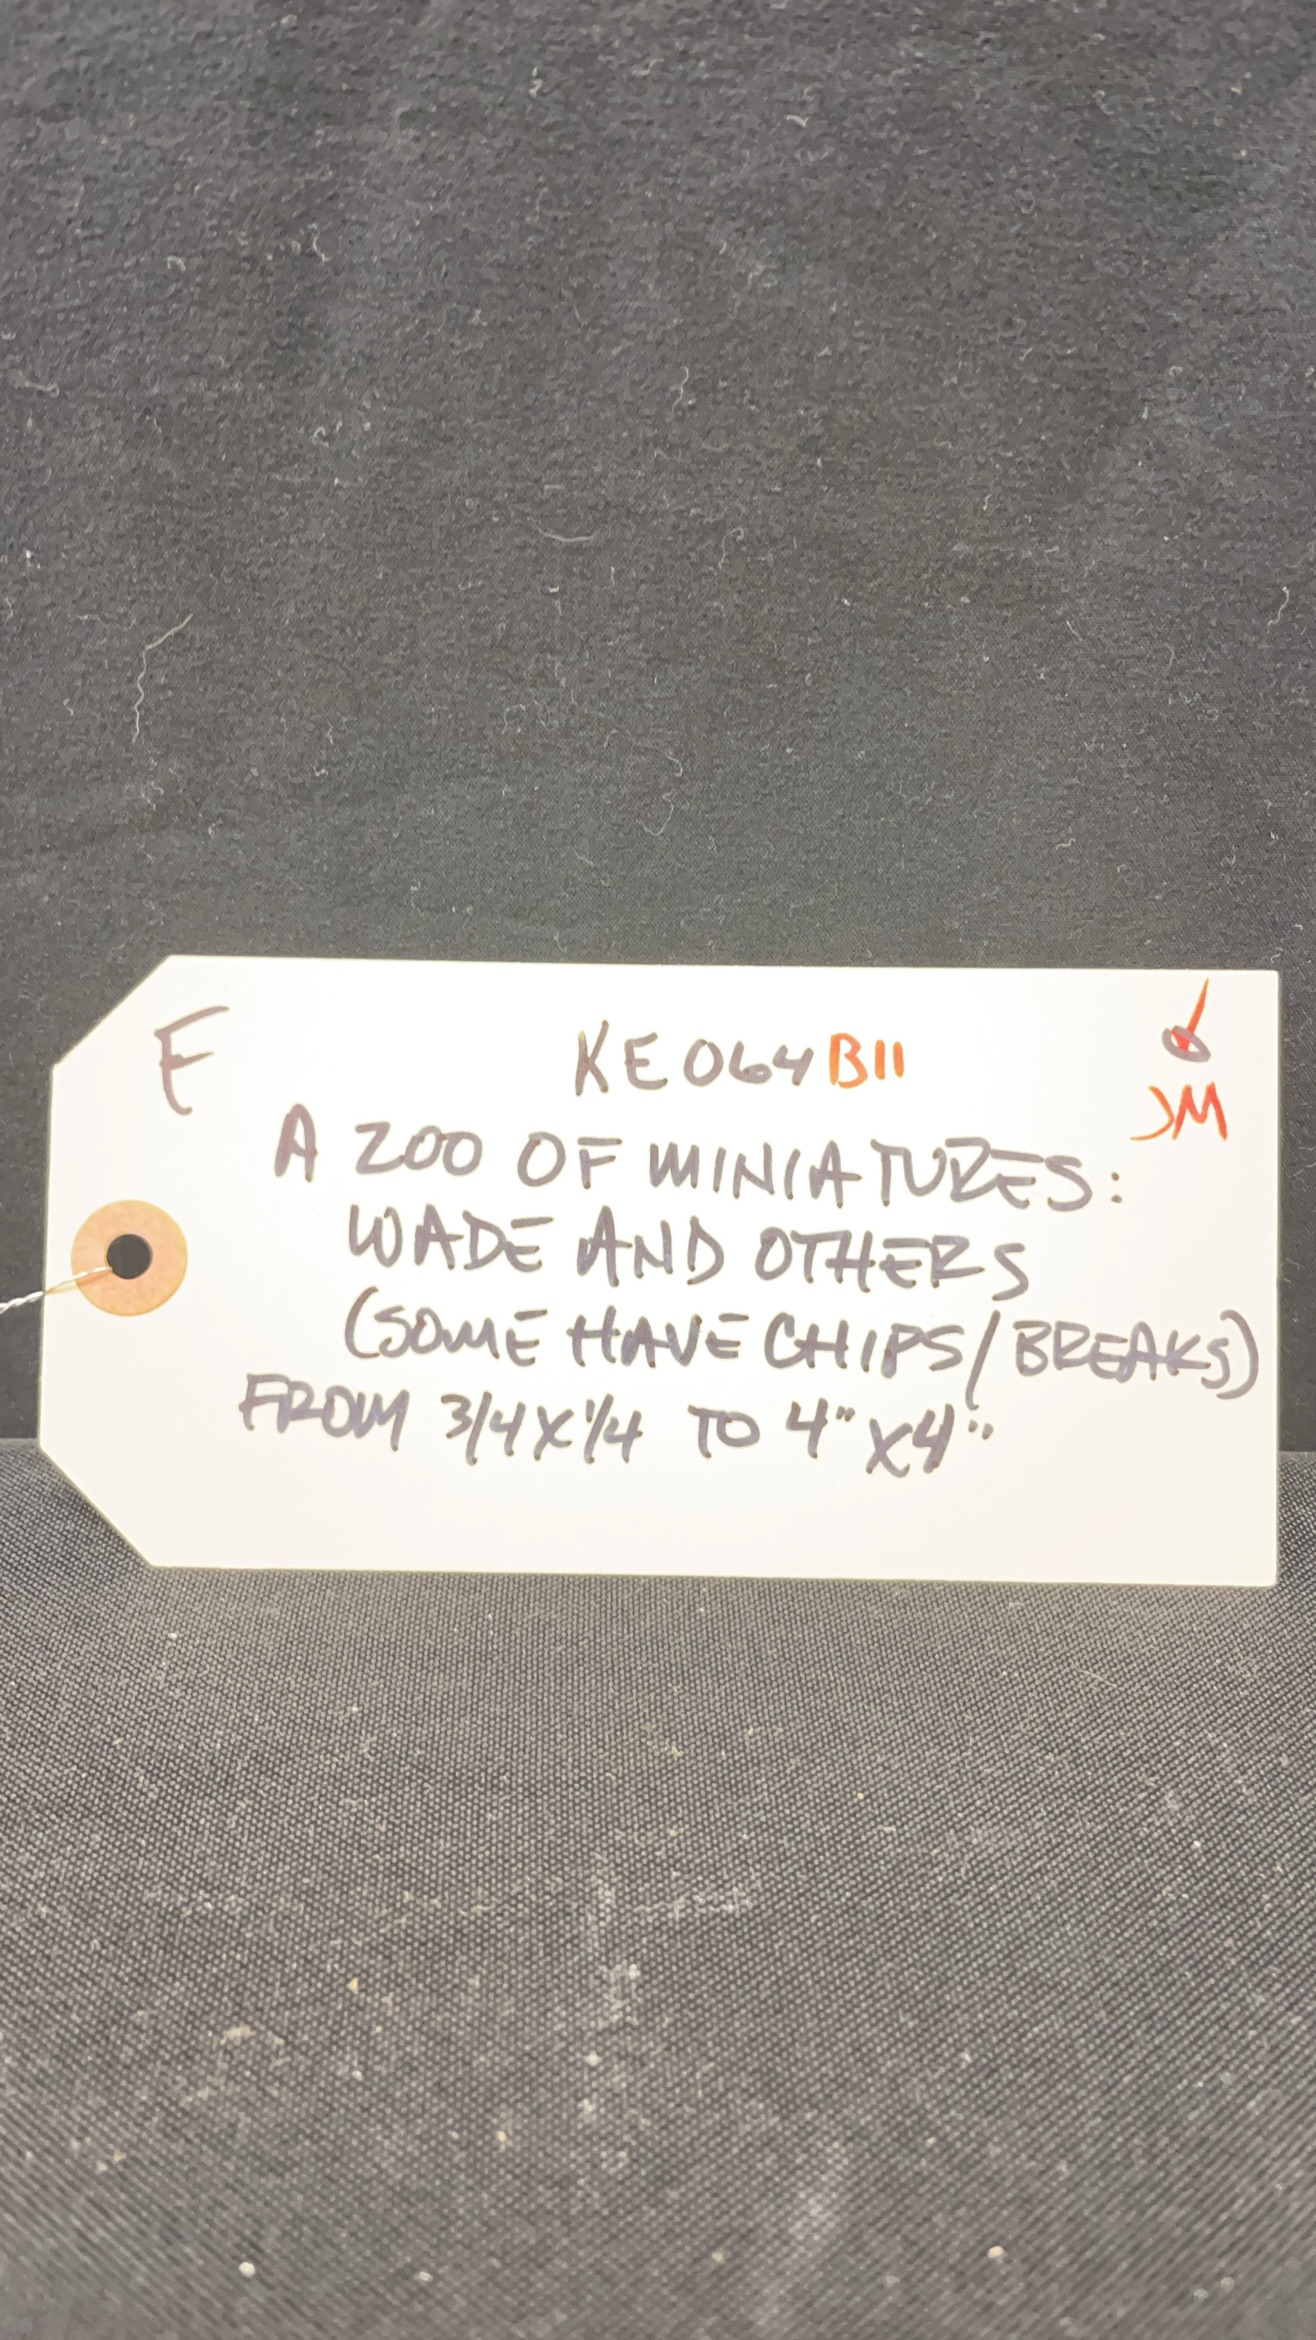 E
KE064B11
JM
A ZOO OF MINIATURES:
WADE AND OTHERS
(SOME HAVE CHIPS/BREAKS)
FROM 3/4X1/4 TO 4"X4"